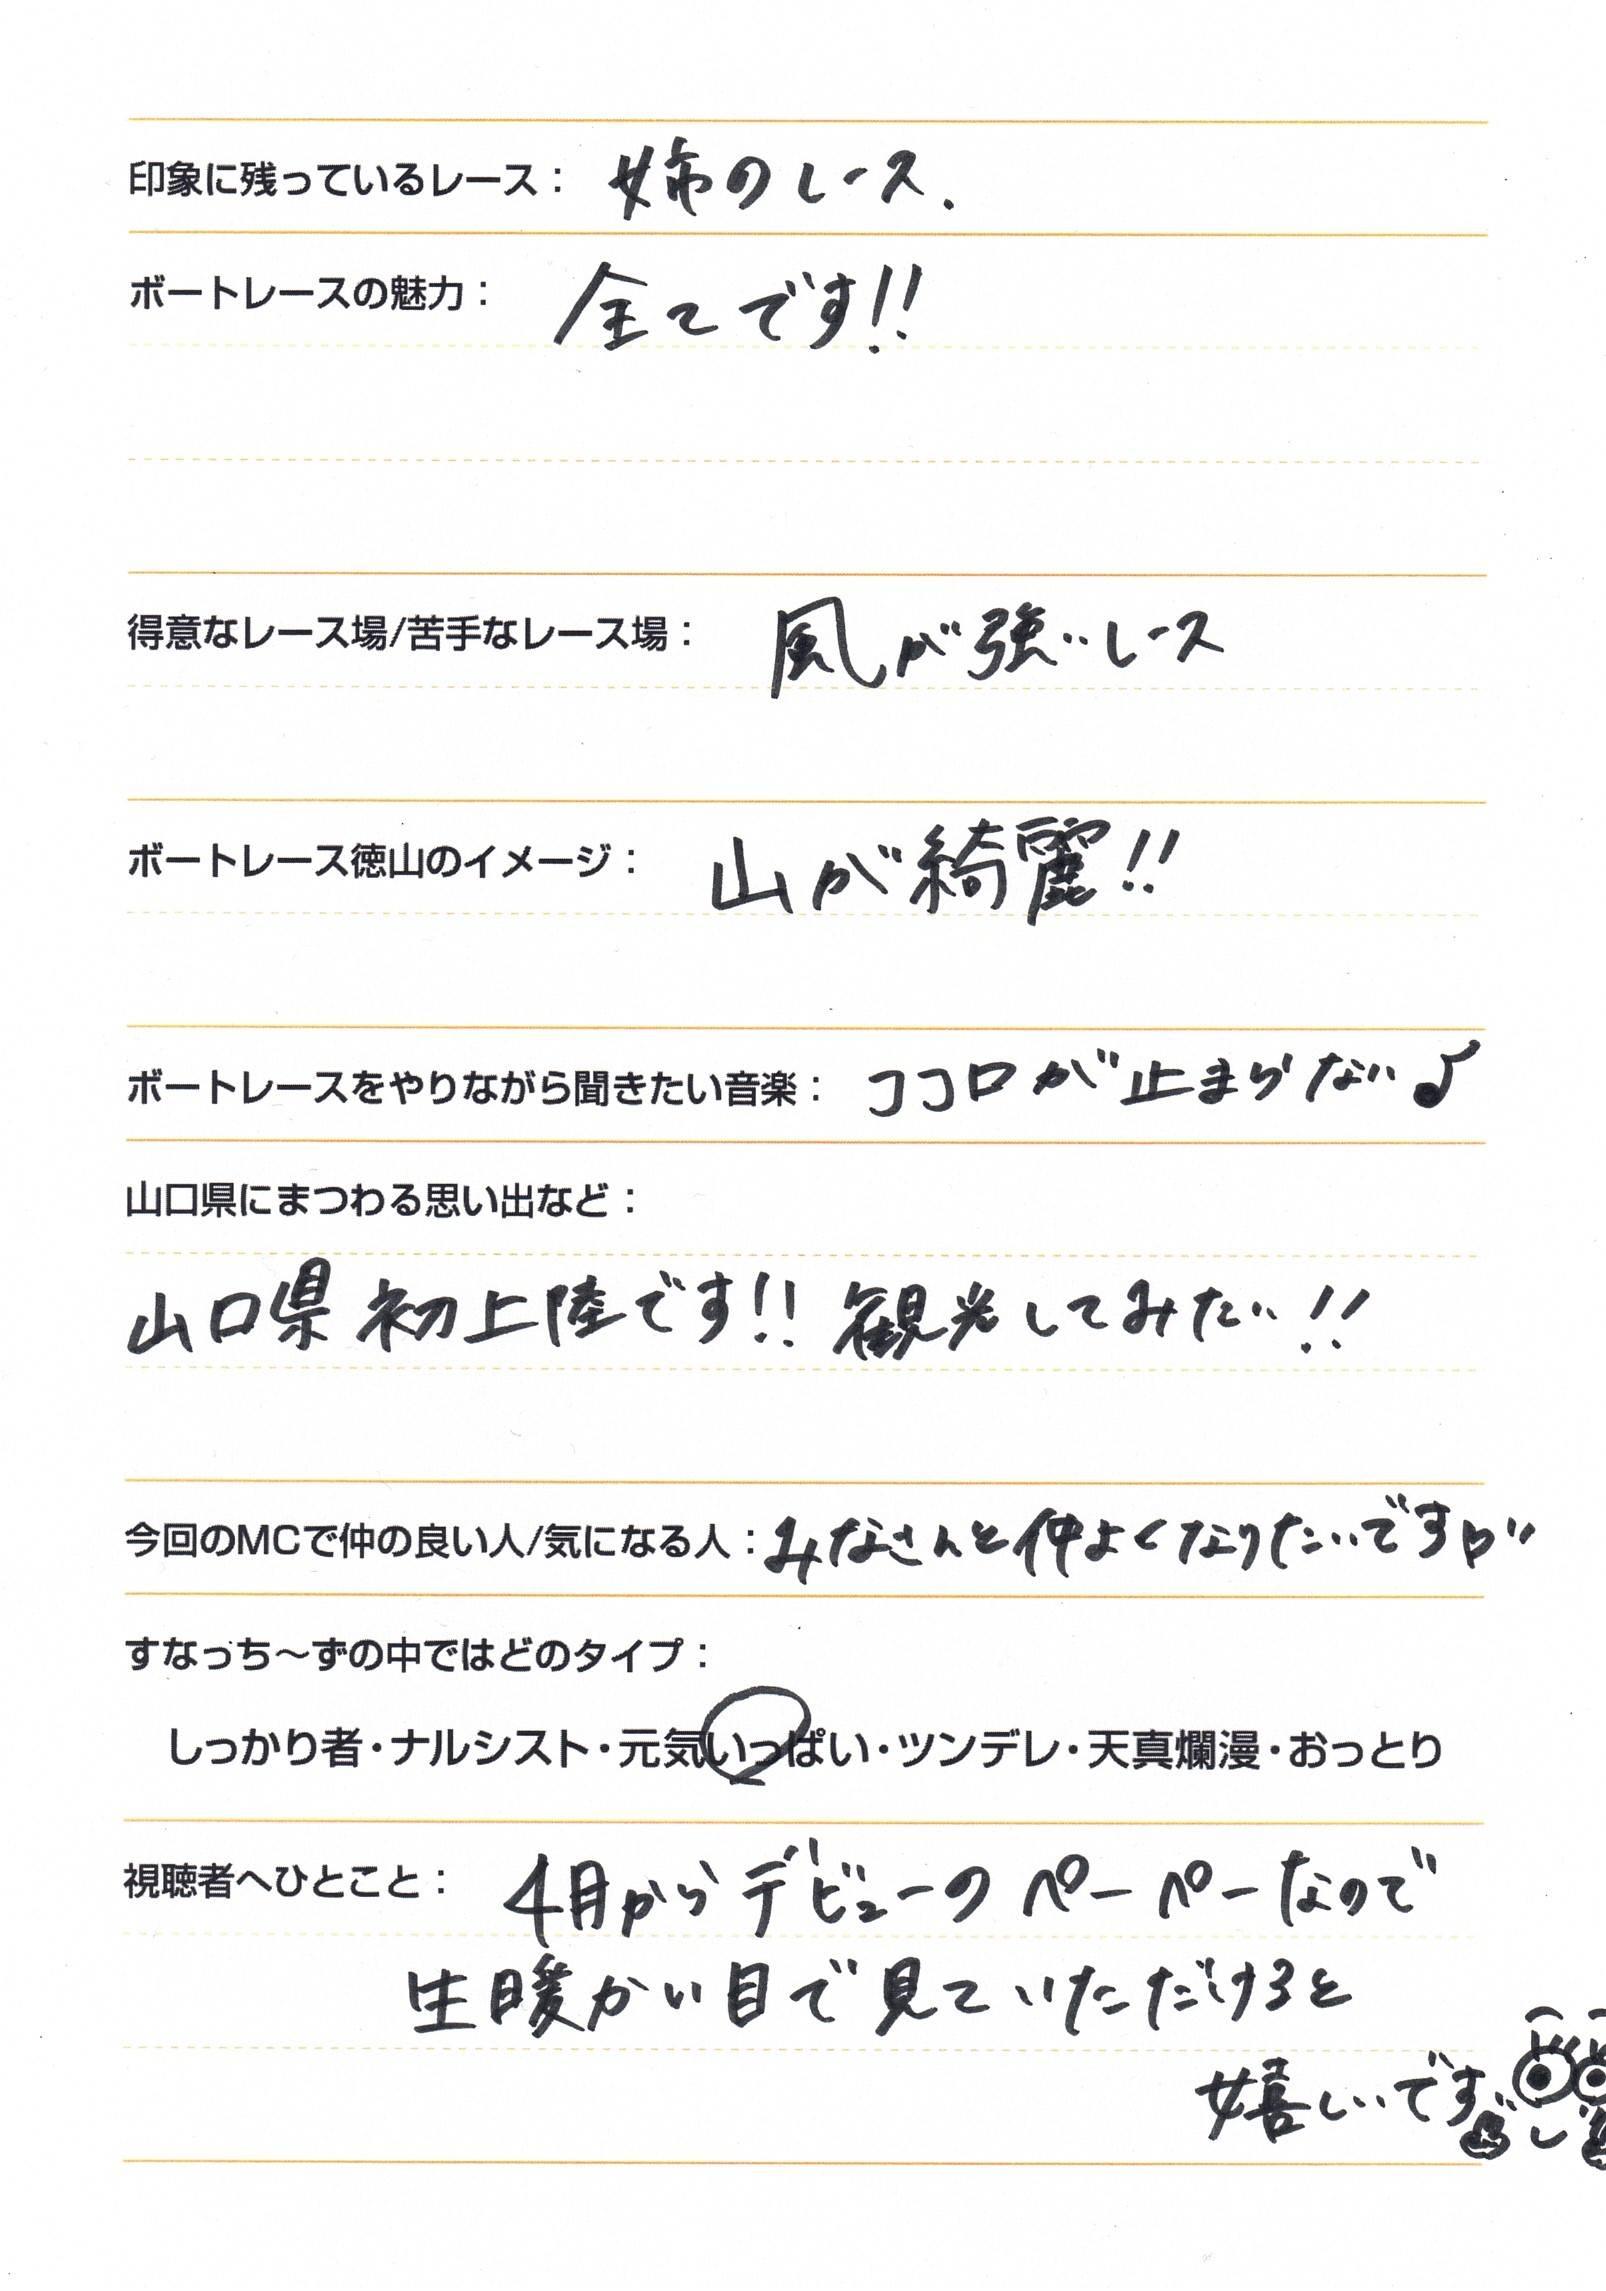 印象に残っているレース： 姉のレース.
ボートレースの魅力： 全てです!!
得意なレース場/苦手なレース場： 風が強いレース
ボートレース徳山のイメージ： 山が綺麗!!
ボートレースをやりながら聞きたい音楽： ココロが止まらない♪
山口県にまつわる思い出など：
山口県初上陸です!! 観光してみたい!!
今回のMCで仲の良い人/気になる人： みなさんと仲よくなりたいです♡"
すなっち～ずの中ではどのタイプ：
しっかり者・ナルシスト・元気いっぱい・ツンデレ・天真爛漫・おっとり
視聴者へひとこと： 4月からデビューのペーペーなので
生暖かい目で見ていただけると
嬉しいです